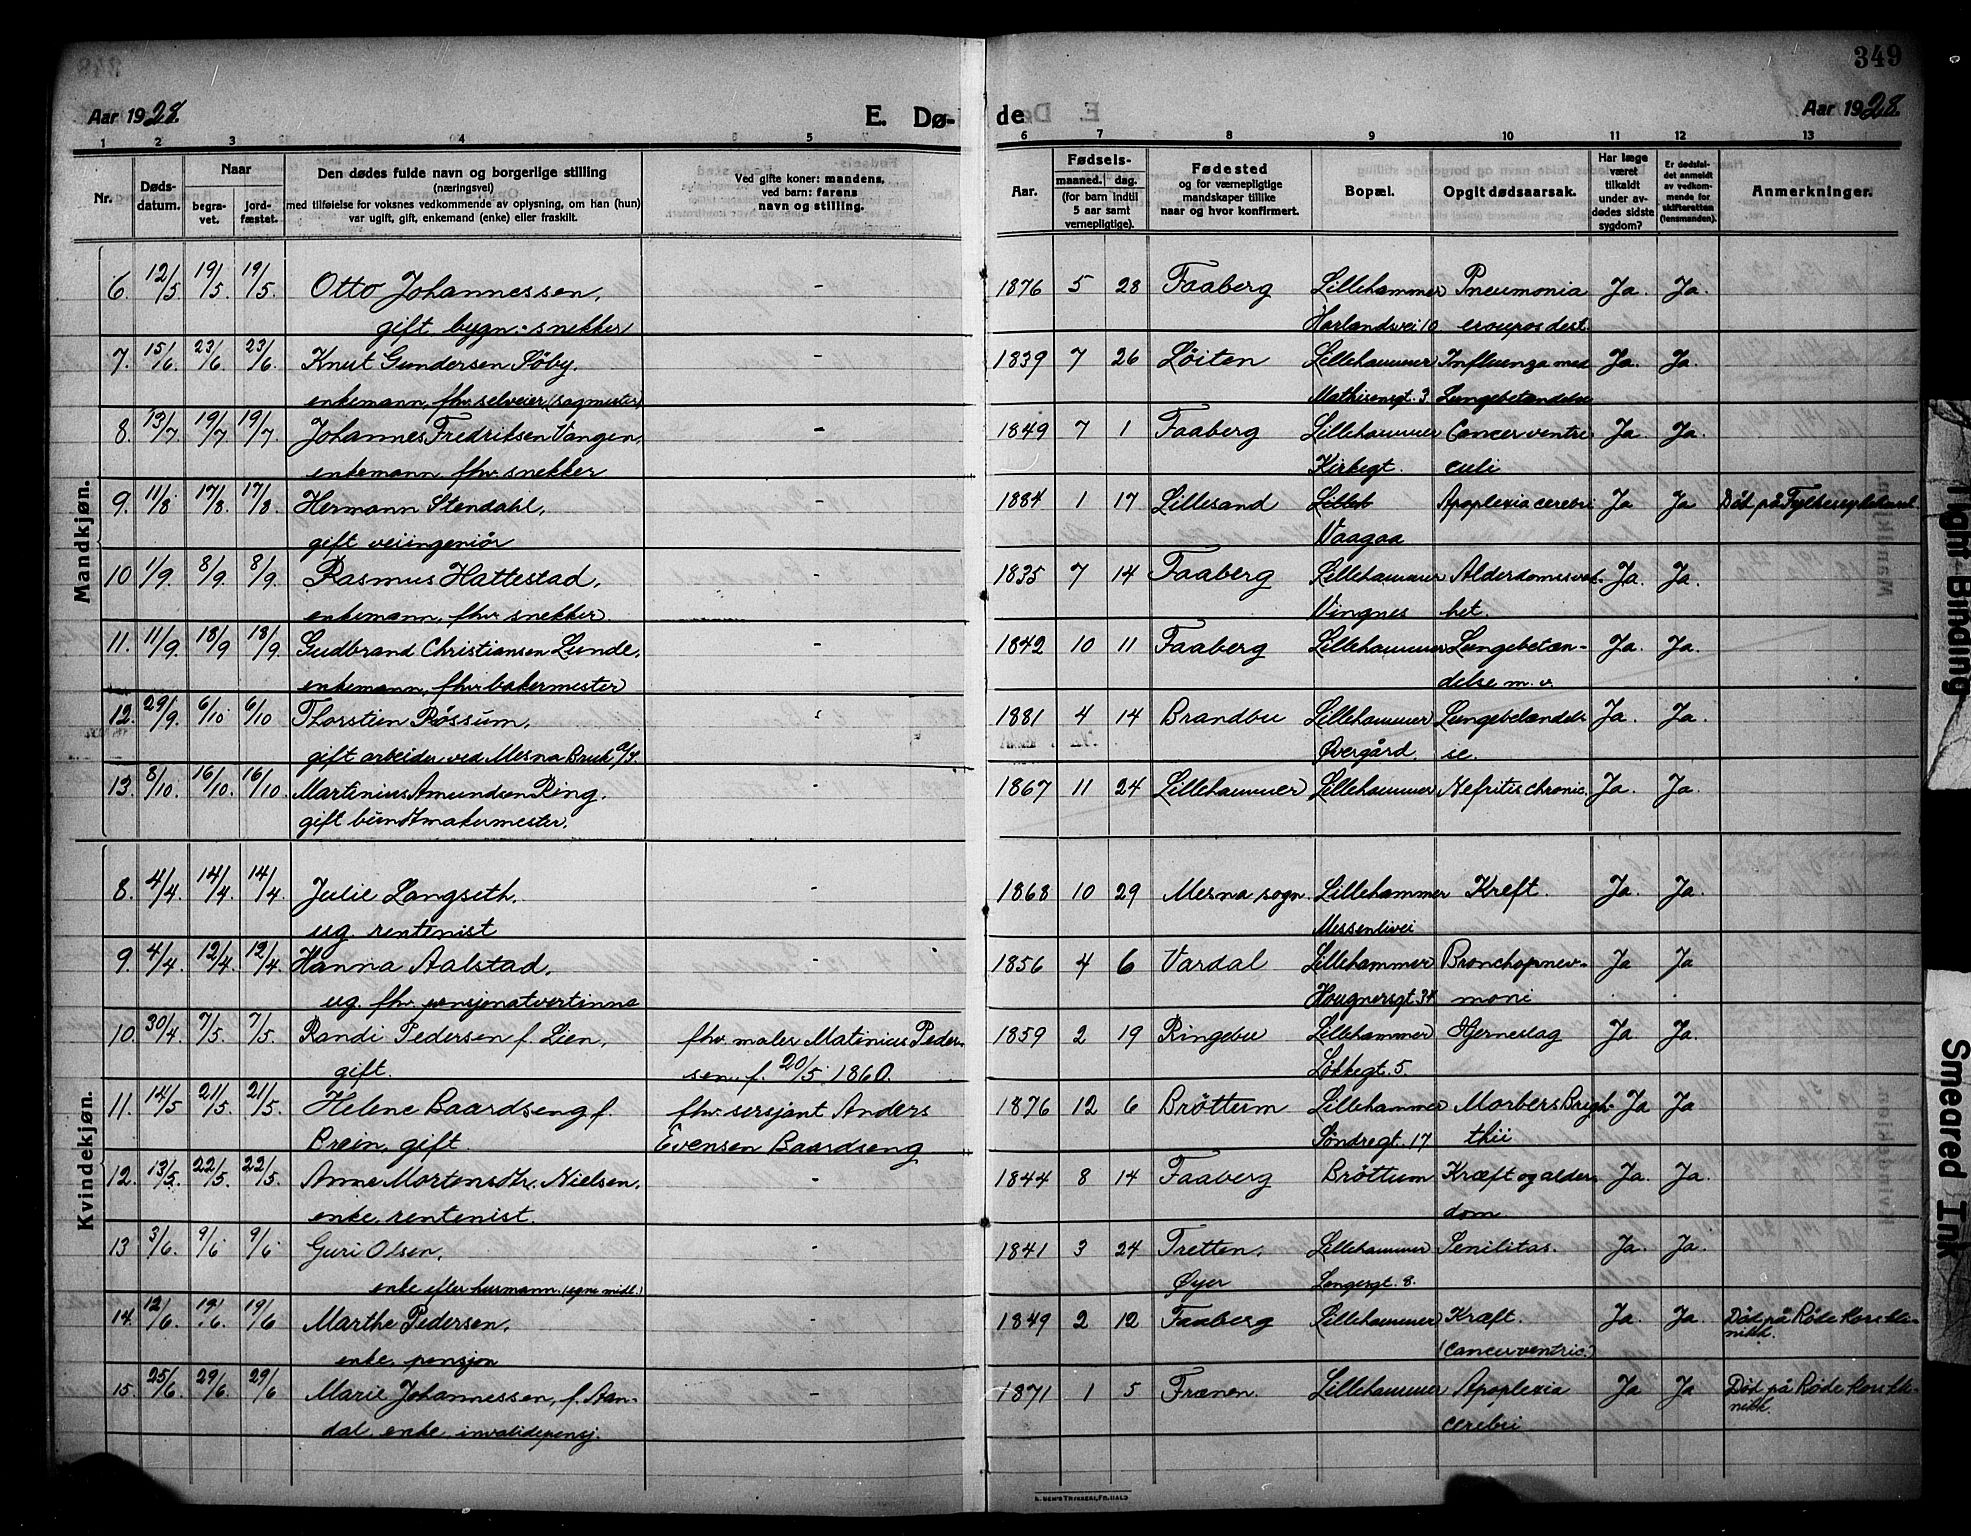 349
Aar 1928.
E. Dø-
de
Aar 1928.
1 2 3 4 5 6 7 8 9 10 11 12 13
Nr.
Døds-
datum.
Naar
begra-
vet.
jord-
fæstet.
Den dødes fulde navn og borgerlige stilling
(næringsvei)
med tilføielse for voksnes vedkommende av oplysning, om han (hun)
var ugift, gift, enkemand (enke) eller fraskilt.
Ved gifte koner: mandens,
ved barn: farens
navn og stilling.
Aar.
Fødsels-
maaned. dag.
(for barn indtil
5 aar samt
vernepligtige).
Fødested
og for værnepligtige
mandskaper tillike
naar og hvor konfirmert.
Bopæl.
Opgit dødsaarsak.
Har læge
været
tilkaldt
under av-
dødes sidste
sygdom?
Er dødsfal-
det anmeldt
av vedkom-
mende for
skifteretten
(lensmanden).
Anmerkninger.
Mandkjøn.
6. 12/5 19/5. 19/5. Otto Johannessen, - 1876 5 28 Faaberg Lillehammer Pneumonia Ja. Ja.
gift, bygn.-snekker Harlandsvei 10 crouposdest.
7. 15/6 23/6 23/6. Knut Gundersen Söby. - 1839 7 26 Löiten Lillehammer Influenza med Ja. Ja.
enkemann, fhv. selveier (sagmester) Mathisensgt. 3 Lungebetændelse
8. 13/7 19/7 19/7. Johannes Fredriksen Vangen, - 1849 7 1 Faaberg Lillehammer Cancer ventri Ja Ja.
enkemann, fhv. snekker Kirkegt. culi
9. 11/8 17/8. 17/8. Hermann Stendahl, 1884 1 17 Lillesand Lilleh Apoplexia cerebri Ja Ja Död på Fylkessykehuset
gift veiingeniör Vaagaa
10 1/9. 8/9. 8/9. Rasmus Hattestad, - 1835 7 14 Faaberg Lillehammer Alderdomssvak- Ja. Ja.
enkemann, fhv. snekker. Vingnes het.
11. 11/9. 18/9 18/9. Gudbrand Christiansen Lunde, - 1842 10 11 Faaberg Lillehammer Lungebetæn- Ja. Ja.
enkemann, fhv. bakermester delse m. v.
12. 29/9. 6/10 6/10 Thorstien Røssum, 1881 4 14 Brandbu Lillehammer Lungebetændel- Ja. Ja.
gift arbeider ved Mesna Bruk a/s. Øvergård. se.
13. 8/10. 16/10. 16/10. Martinius Amundsen Ring. - 1867 11 24 Lillehammer Lillehammer Nefritis chronic. Ja. Ja.
gift buntmakermester.
Kvindekjøn.
8. 4/4. 14/4. 14/4. Julie Langseth. - 1868 10 29 Mesna sogn. Lillehammer Kreft. Ja. Ja.
ug. rentenist Messenlivei
9. 4/4. 12/4. 12/4. Hanna Aalstad. - 1856 4 6 Vardal Lillehammer Bronchopnev- Ja Ja
ug. fhv. pensjonatvertinne Hougnersgt. 34 moni
10. 30/4. 7/5. 7/5. Randi Pedersen f. Lien, fhv. maler Matinius Peder- 1859 2 19 Ringebu Lillehammer Hjerneslag Ja Ja.
gift. sen. f. 20/5 1860. Løkkegt. 5.
11. 14/5 21/5. 21/5. Helene Baardseng f. fhv. sersjant Anders 1876 12 6 Bröttum Lillehammer Morbers Brigh- Ja Ja
Brein, gift. Evensen Baardseng Söndregt. 17 thii
12. 13/5. 22/5. 22/5. Anne Mortensdtr. Nielsen. - 1844 8 14 Faaberg Bröttum Kræft og alder- Ja. Ja.
enke, rentenist. dom
13 3/6. 9/6 9/6 Guri Olsen, - 1841 3 24 Tretten, Lillehammer Senilitas. Ja. Ja.
enke efter husmann. (egne midl.) Øyer Langesgt. 8.
14. 12/6. 19/6. 19/6. Marthe Pedersen, - 1849 2 12 Faaberg Lillehammer Kræft. Ja. Ja. Död på Röde Kors kli-
enke, pensjon (Cancer ventric.) nikk.
15. 25/6. 29/6. 29/6 Marie Johannessen, f. Aan- - 1871 1 5 Frænen. Lillehammer Apoplexia Ja Ja Död på Röde Kors kli-
dal, enke, invalidepensj. cerebri nikk.
Tight Binding
Smeared Ink